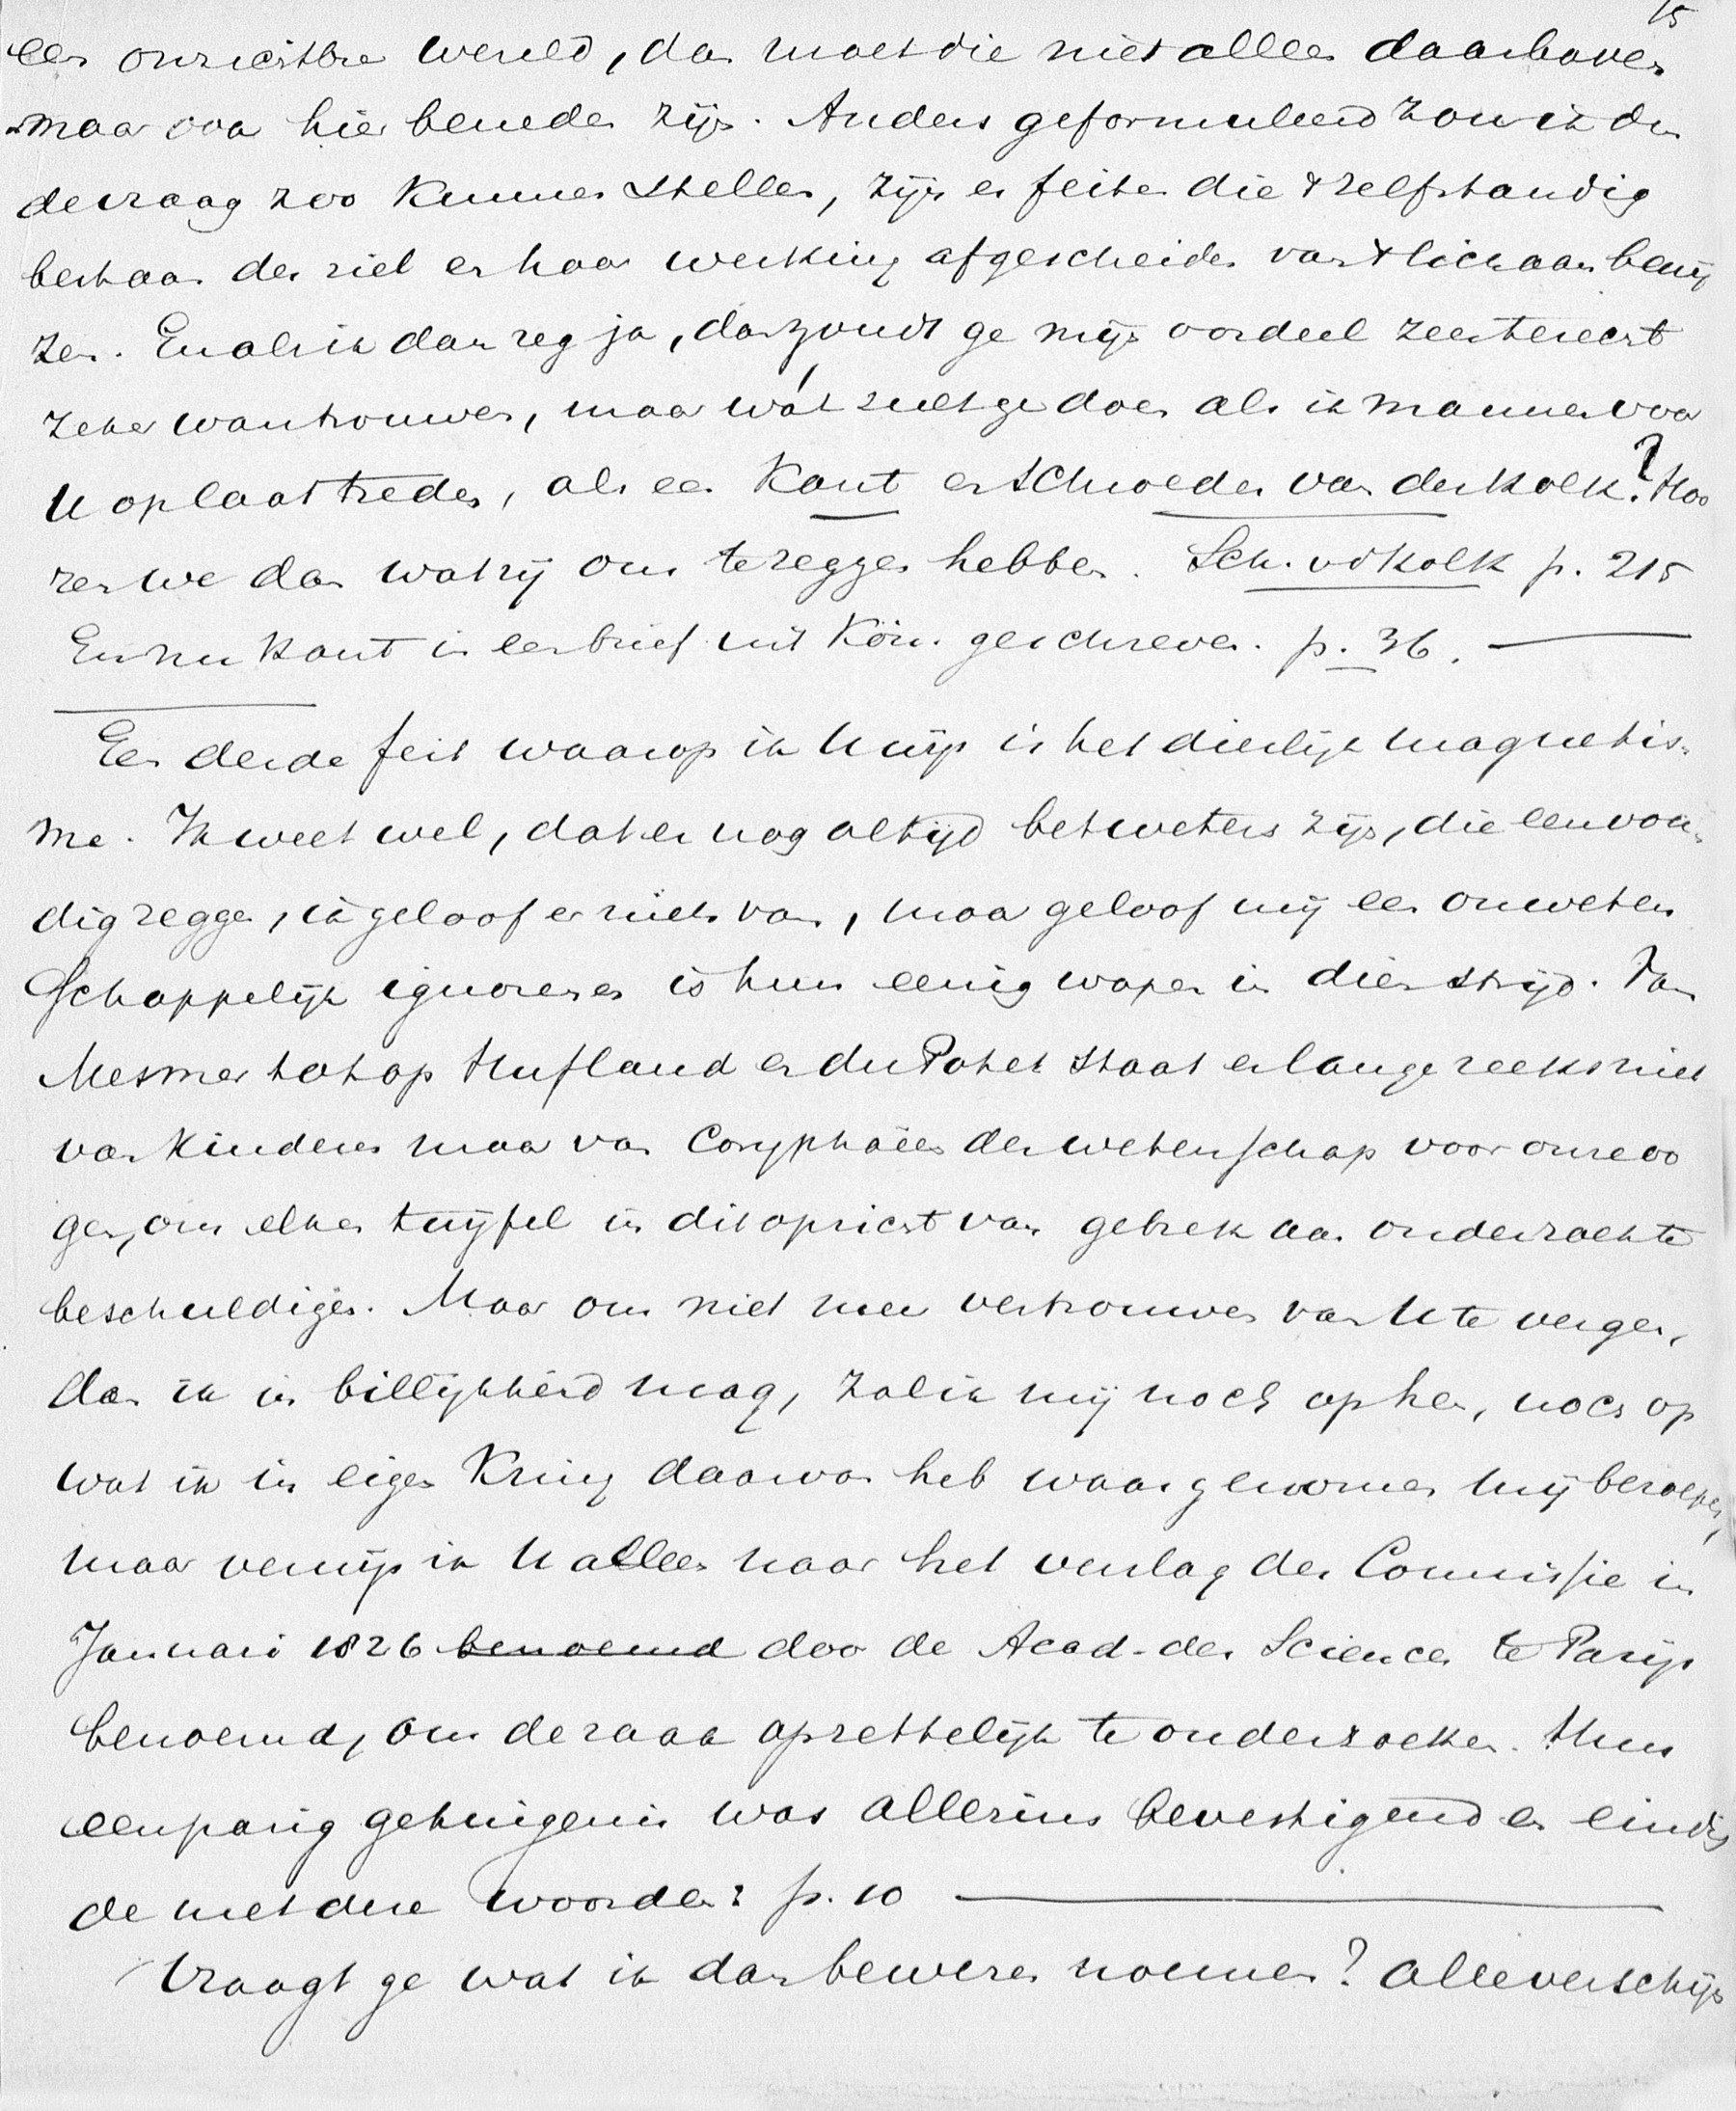 15
een onzichtbre wereld, dan moet die niet alleen daarboven
maar ook hier beneden zijn. Anders geformuleerd zou ik dus
de vraag zoo kunnen stellen, zijn er feiten die 't zelfstandig
bestaan der ziel en haar werking afgescheiden van 't lichaam bewij
zen. En als ik dan zeg ja, dan zoudt ge mijn oordeel zeer terecht
zeker wantrouwen, maar wát zult ge doen als ik mannen voor
U op laat treden, als een Kant en Schroeder van der Kolk? Hoo
ren we dan wat zij ons te zeggen hebben. Sch. vd Kolk p. 215
En nu Kant in een brief uit Kön. geschreven. p. 36. —
Een derde feit waarop ik wijs is het dierlijk magnetis-
me. Ik weet wel, dat er nog altijd betweters zijn, die eenvou-
dig zeggen, ik geloof er niets van, maar geloof mij een onweten
schappelijk ignoreren is hun eenig wapen in dien strijd. Van
Mesmer tot op Hufland en du Potet staat en lange reeks niet
van kinderen maar van Coryphaëen der wetenschap voor onze oo
gen, om elken twijfel in dit opzicht van gebrek aan onderzoek te
beschuldigen. Maar om niet meer vertrouwen van U te vergen,
dan ik in billijkheid mag, zal ik mij noch op hen, noch op
wat ik in eigen Kring daarvan heb waargenomen mij beroepen,
maar verwijs ik U alleen naar het verslag der Commissie in
Januari 1826 benoemd door de Acad. des Sciences te Parijs
benoemd, om de zaak opzettelijk te onderzoeken. Hun
eenparig getuigenis was allezins bevestigend en eindig
de met deze woorden: p. 10 —
Vraagt ge wat ik dan bewezen noemen? Alle verschijn